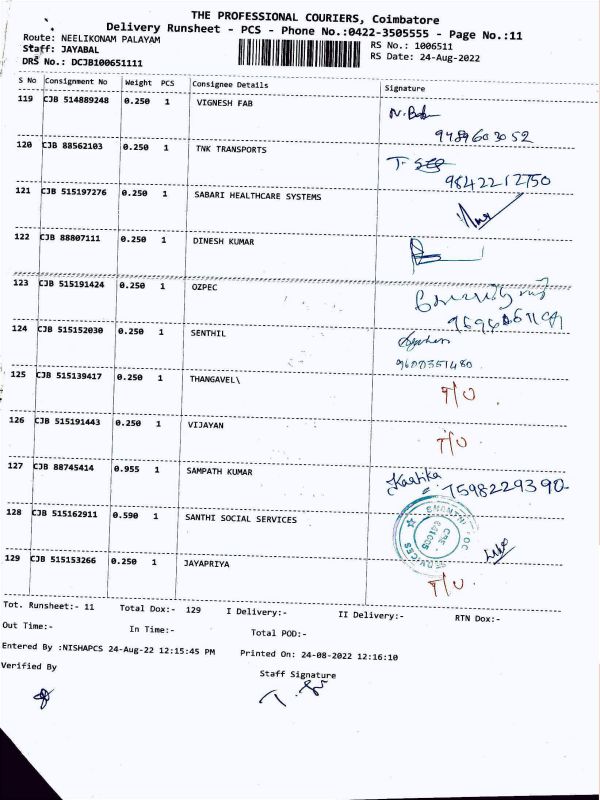 THE PROFESSIONAL COURIERS, Coimbatore
Delivery Runsheet - PCS - Phone No.:0422-3505555 - Page No.:11
Route: NEELIKONAM PALAYAM
Staff: JAYABAL
DRS No.: DCJB100651111
RS No.: 1006511
RS Date: 24-Aug-2022
S No Consignment No Weight PCS Consignee Details Signature
119 CJB 514889248 0.250 1 VIGNESH FAB
9489603052
120 CJB 88562103 0.250 1 TNK TRANSPORTS
9842212750
121 CJB 515197276 0.250 1 SABARI HEALTHCARE SYSTEMS
122 CJB 88807111 0.250 1 DINESH KUMAR
123 CJB 515191424 0.250 1 OZPEC
124 CJB 515152030 0.250 1 SENTHIL
9600351480
125 CJB 515139417 0.250 1 THANGAVEL\ T/U
126 CJB 515191443 0.250 1 VIJAYAN T/U
127 CJB 88745414 0.955 1 SAMPATH KUMAR Kaatika
7598229390
128 CJB 515162911 0.590 1 SANTHI SOCIAL SERVICES
129 CJB 515153266 0.250 1 JAYAPRIYA T/U
Tot. Runsheet:- 11 Total Dox:- 129 I Delivery:- II Delivery:- RTN Dox:-
Out Time:- In Time:- Total POD:-
Entered By :NISHAPCS 24-Aug-22 12:15:45 PM Printed On: 24-08-2022 12:16:10
Verified By Staff Signature